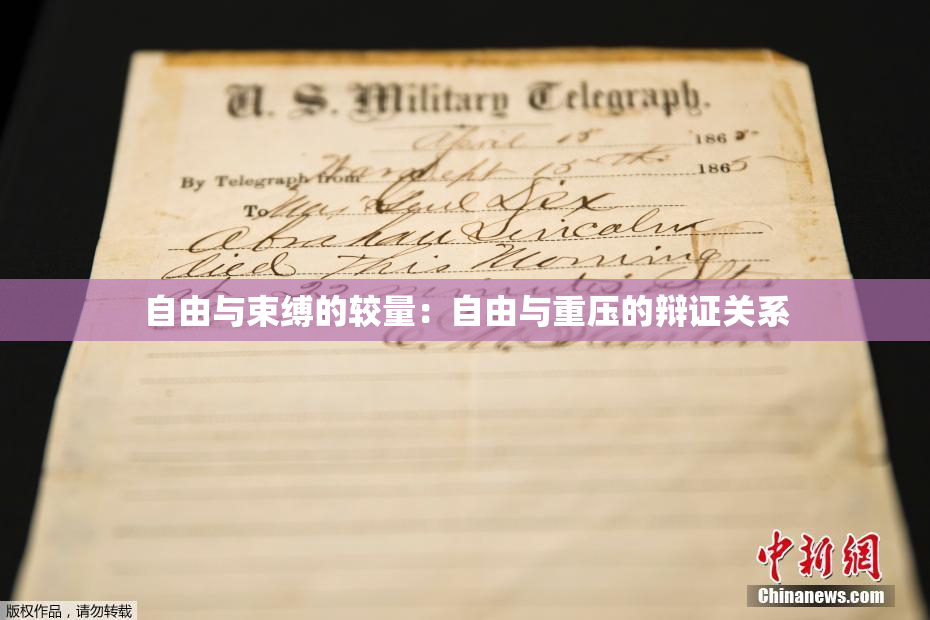 U. S. Military Telegraph.
April 15 1865
By Telegraph from War Dept 15th 1865
To Maj Genl Dix
Abraham Lincoln
died This Morning
at 22 minutes after
自由与束缚的较量：自由与重压的辩证关系
E. M. Stanton
中新网
Chinanews.com
版权作品，请勿转载